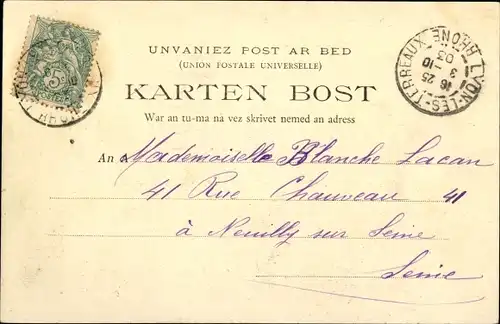 UNVANIEZ POST AR BED
(UNION POSTALE UNIVERSELLE)
KARTEN BOST
War an tu-ma na vez skrivet nemed an adress
An Mademoiselle Blanche Lacan
41 Rue Chauveau 41
à Neuilly sur Seine
Seine
LYON-LES-TERREAUX RHÔNE
16 25
3 -10
03
5c